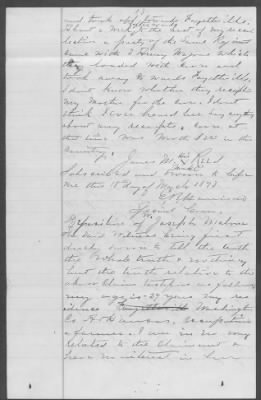 13
and took off towards Fayetteville.
About a week to the best of my recol
lection a party of the same Regiment
came with 2 Army Wagons which
they loaded with Corn and
took away towards Fayetteville,
I dont know whether they receipted
my Mother for the Corn, I dont
think I ever heard her say anything
about any receipts, Corn at
the time was worth in the
Country.
James M. his Reed
mark
Subscribed and sworn to before
me this 18 day of 1873.
Special Com.
Deposition of Joseph
said Witness being first
duly sworn to tell the truth
the Whole truth & nothing
but the truth relative to the
above Claim testifies as follows
my age is 29 years my res
idence Fayetteville Washington
Co Arkansas, occupation
a farmer. I am in no way
related to the Claimant &
have no interest in her